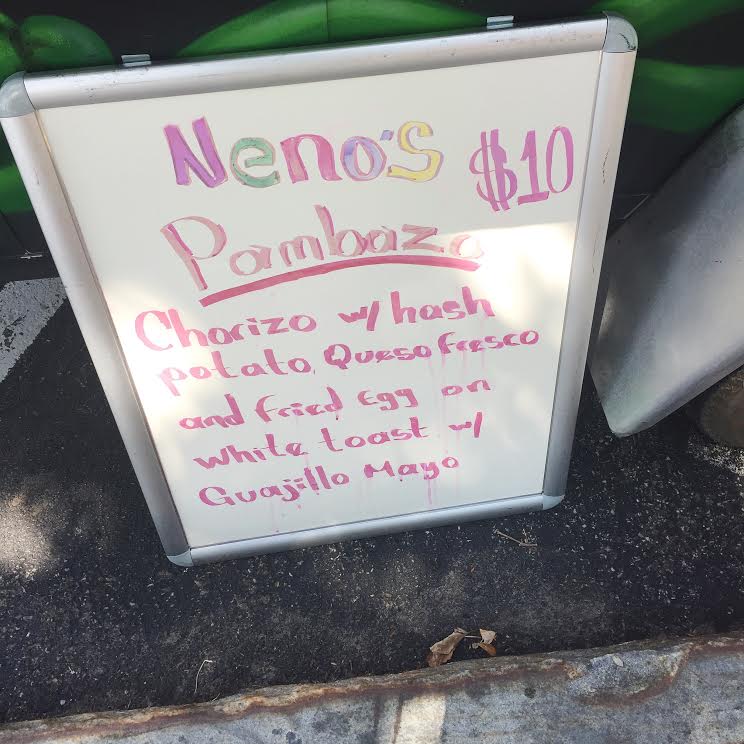 Neno's $10
Pambazo
Chorizo w/ hash
potato, Queso fresco
and fried Egg on
white toast w/
Guajillo Mayo